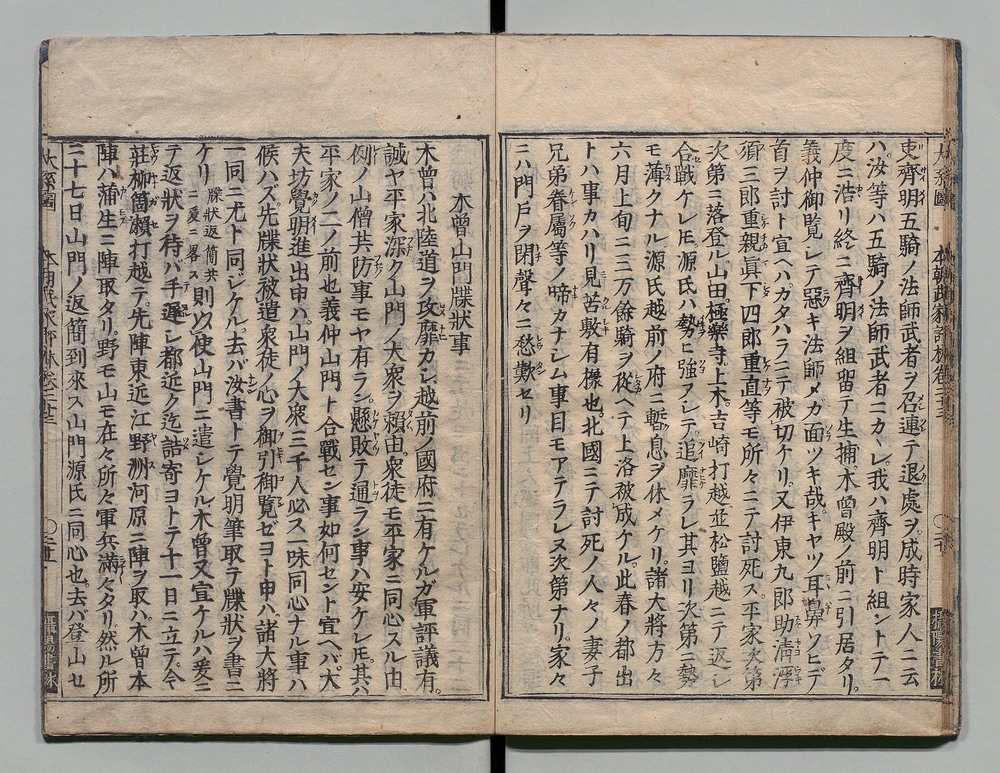 吏齊明五騎ノ法師武者ヲ召連テ退處ヲ成時家人ニ云
ハ汝等ハ五騎ノ法師武者ニカヽレ我ハ齊明ト組ントテ一
度ニ浩リ終ニ齊明ヲ組留テ生捕木曽殿ノ前ニ引居タリ
義仲御覧シテ惡キ法師メガ面ツキ哉キヤツ耳鼻ソヒデ
首ヲ討ト宜ヘハカタハラニテ被切ケリ又伊東九郎助清
須三郎重親眞下四郎重直等モ所々ニテ討死ス平家次第
次第ニ落登ル山田極樂寺上木吉崎打越並松鹽越ニテ返シ
合戰ケレ𪜈源氏ハ勢ヒ強フシテ追靡ラレ其ヨリ次第ニ勢
モ薄クナル源氏越前ノ府ニ暫息ヲ休メケリ諸大將方々
六月上旬ニ三万餘騎ヲ從ヘテ上洛被成ケル此春ノ都出
トハ事カハリ見苦敷有樣也北國ニテ討死ノ人々ノ妻子
兄弟眷屬等ノ啼カナシム事目モアテラレヌ次第ナリ家々
ニハ門戸ヲ閉聲々ニ愁歎セリ
木曽山門牒状事
木曽ハ北陸道ヲ攻靡カシ越前ノ國府ニ有ケルガ軍評議有
誠ヤ平家深ク山門ノ大衆ヲ頼由衆徒モ平家ニ同心スル由
例ノ山僧共防事モヤ有ラン懸敗テ通ラン事ハ安ケレ𪜈其ハ
平家ノ二ノ前也義仲山門ト合戰セン事如何セント宜ヘバ大
夫坊覺明進出申ハ山門ノ大衆三千人必ス一味同心ナル事ハ
候ハズ先牒状被遣衆徒ノ心ヲ御引御覧ゼヨト申ハ諸大將
一同ニ尤ト同ジケル去バ汝書トテ覺明筆取テ牒状ヲ書ニ
ケリ牒状返簡共ニ爰ニ畧ス則以使山門ニ遣シケル木曽又宜ケルハ爰ニ
テ返状ヲ待バ手遲シ都近ク迄詰寄ヨトテ十一日ニ立テ今
莊柳箇瀬打越テ先陣東近江野洲河原ニ陣ヲ取ハ木曽本
陣ハ蒲生ニ陣取タリ野モ山モ在々所々軍兵滿々タリ然ル所
ニ十七日山門ノ返簡到來ス山門源氏ニ同心也去バ登山セ